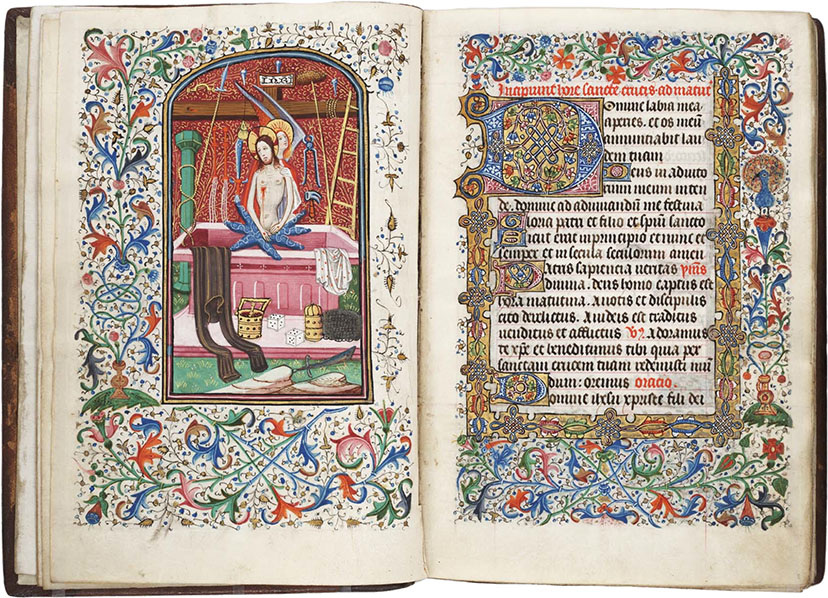 INRI
Incipiunt hore sancte crucis ad matut
Domine labia mea
aperies. et os meū
nunciabit lau
dem tuam
Deus in adiuto
rium meum in ten
de. Domine ad adiuuandū me festina
Gloria patri et filio et spirū sancto
Sicut erat in principio et nunc et
semper et in secula seculorum amen
Patris sapiencia veritas ym̄s
diuina. deus homo captus est
hora matutina. A notis et discipulis
cito derelictus. A iudeis est traditus
uenditus et afflictus V. Adoramus
te xp̄e et benedicimus tibi quia per
sanctam crucem tuam redemisti mū
dum: oremus oratio.
Domine ihesu xpriste fili dei